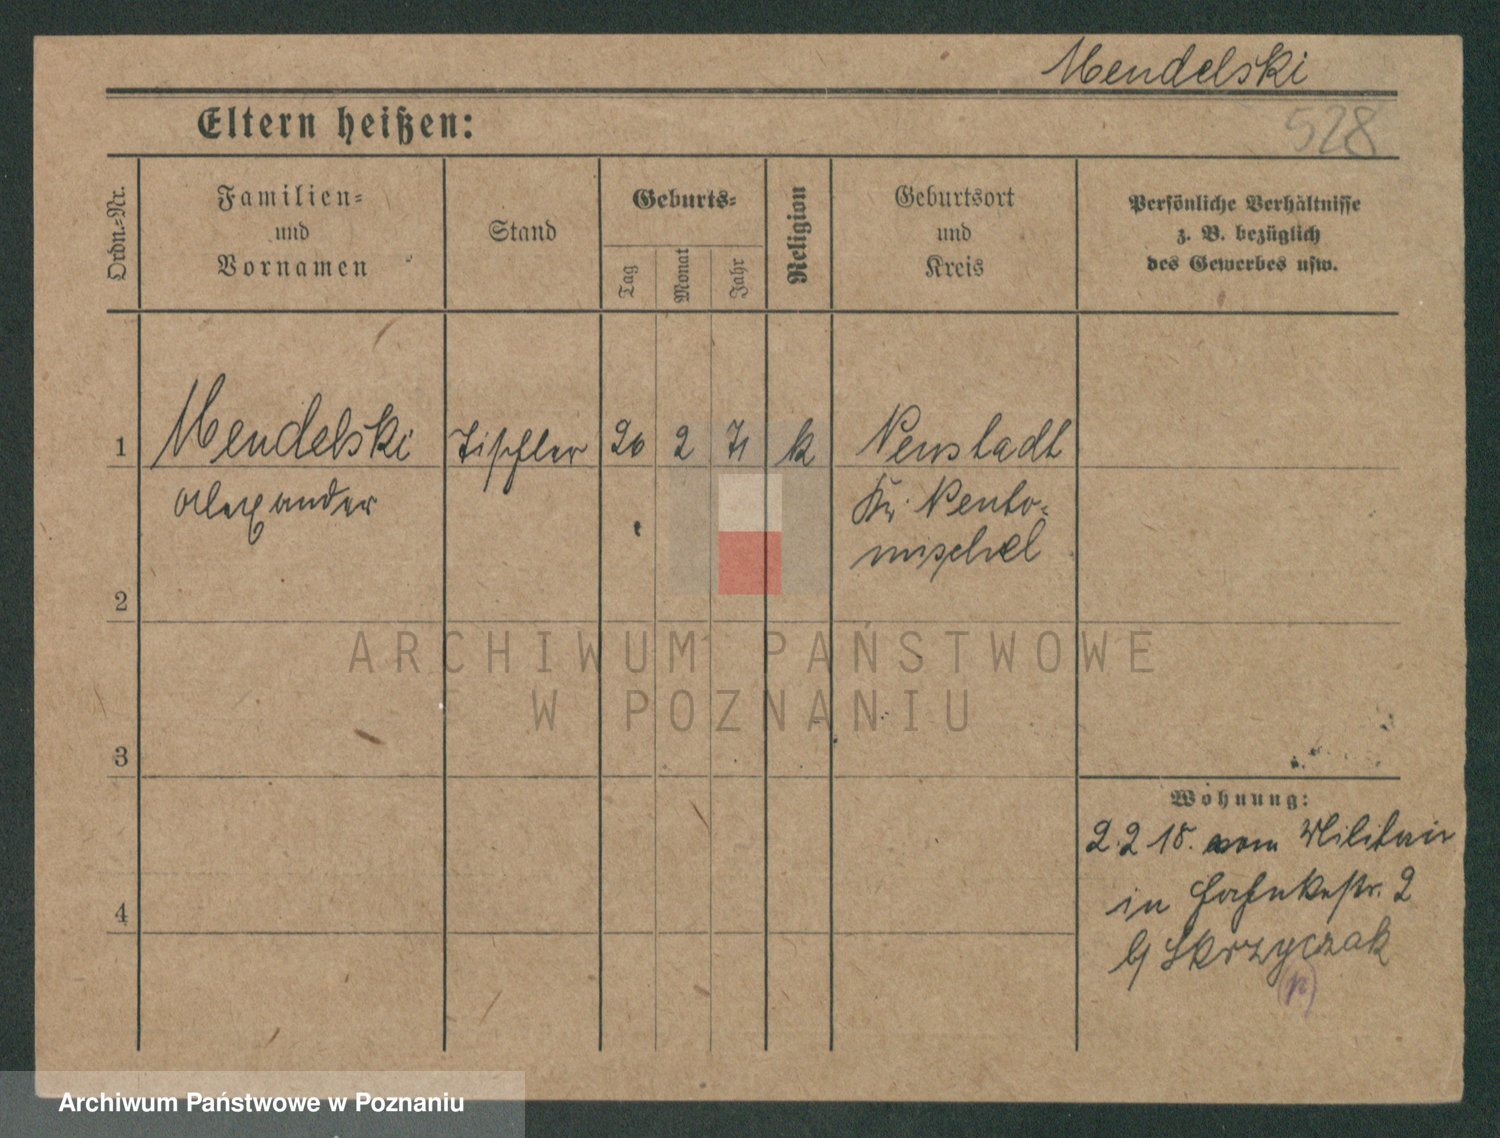 Mendelski
528
Eltern heißen:
Ordn.-Nr.
Familien-
und
Vornamen
Stand
Geburts-
Tag
Monat
Jahr
Religion
Geburtsort
und
Kreis
Persönliche Verhältnisse
z. B. bezüglich
des Gewerbes usw.
1 Mendelski Tischler 20 2 71 k Neustadt
Alexander Kr. Neuto-
mischel
2
ARCHIWUM PAŃSTWOWE
W POZNANIU
3
Wohnung:
2.2 18. vom Militair
in 2
4
b/ Skrzyczak
(p)
Archiwum Państwowe w Poznaniu